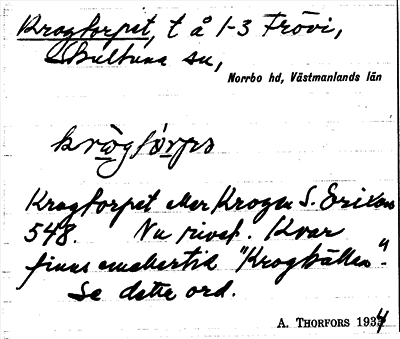 Krogtorpet, t å 1-3 Frövi,
Bultuna sn,
Norrbo hd, Västmanlands län
Krogtorpet eller Krogen S. Erixon
548. Nu rivet. Kvar
finns emellertid "Krogkällan".
Se detta ord.
A. THORFORS 1934